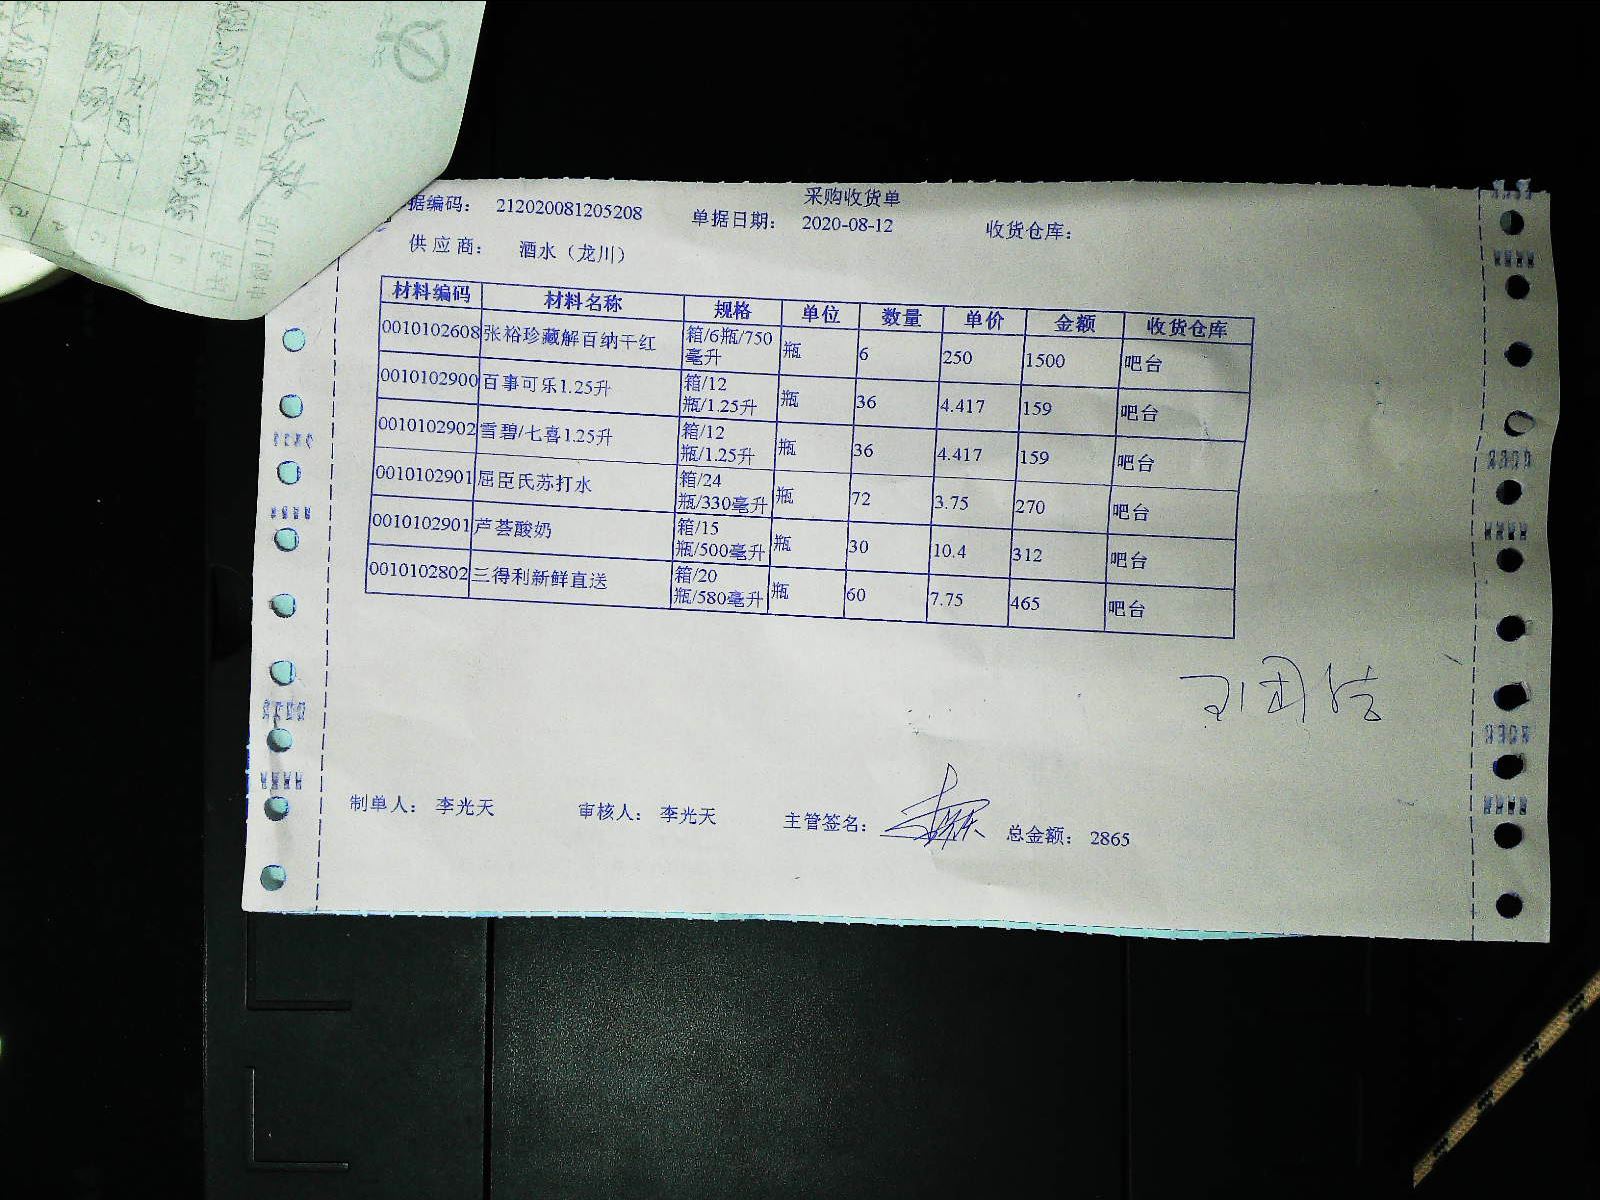 采购收货单
据编码： 212020081205208 单据日期： 2020-08-12 收货仓库：
供应商： 酒水（龙川）
材料编码 材料名称 规格 单位 数量 单价 金额 收货仓库
0010102608 张裕珍藏解百纳干红 箱/6瓶/750毫升 瓶 6 250 1500 吧台
0010102900 百事可乐1.25升 箱/12瓶/1.25升 瓶 36 4.417 159 吧台
0010102902 雪碧/七喜1.25升 箱/12瓶/1.25升 瓶 36 4.417 159 吧台
0010102901 屈臣氏苏打水 箱/24瓶/330毫升 瓶 72 3.75 270 吧台
0010102901 芦荟酸奶 箱/15瓶/500毫升 瓶 30 10.4 312 吧台
0010102802 三得利新鲜直送 箱/20瓶/580毫升 瓶 60 7.75 465 吧台
制单人： 李光天 审核人： 李光天 主管签名： 总金额： 2865